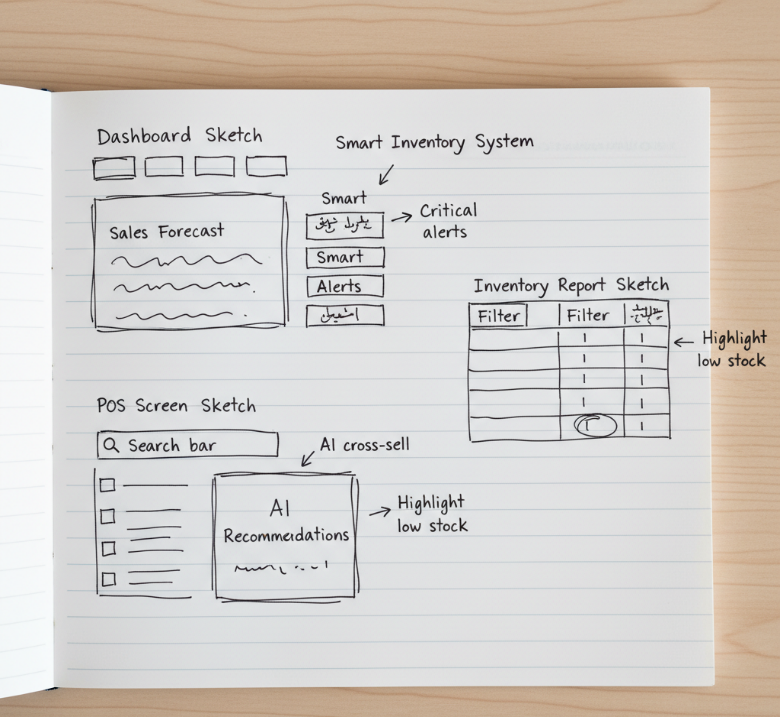 Dashboard Sketch
Smart Inventory System
Smart
Critical
alerts
Sales Forecast
Smart
Alerts
Inventory Report Sketch
Filter
Filter
Highlight
low stock
POS Screen Sketch
Search bar
AI cross-sell
AI
Recommendations
Highlight
low stock